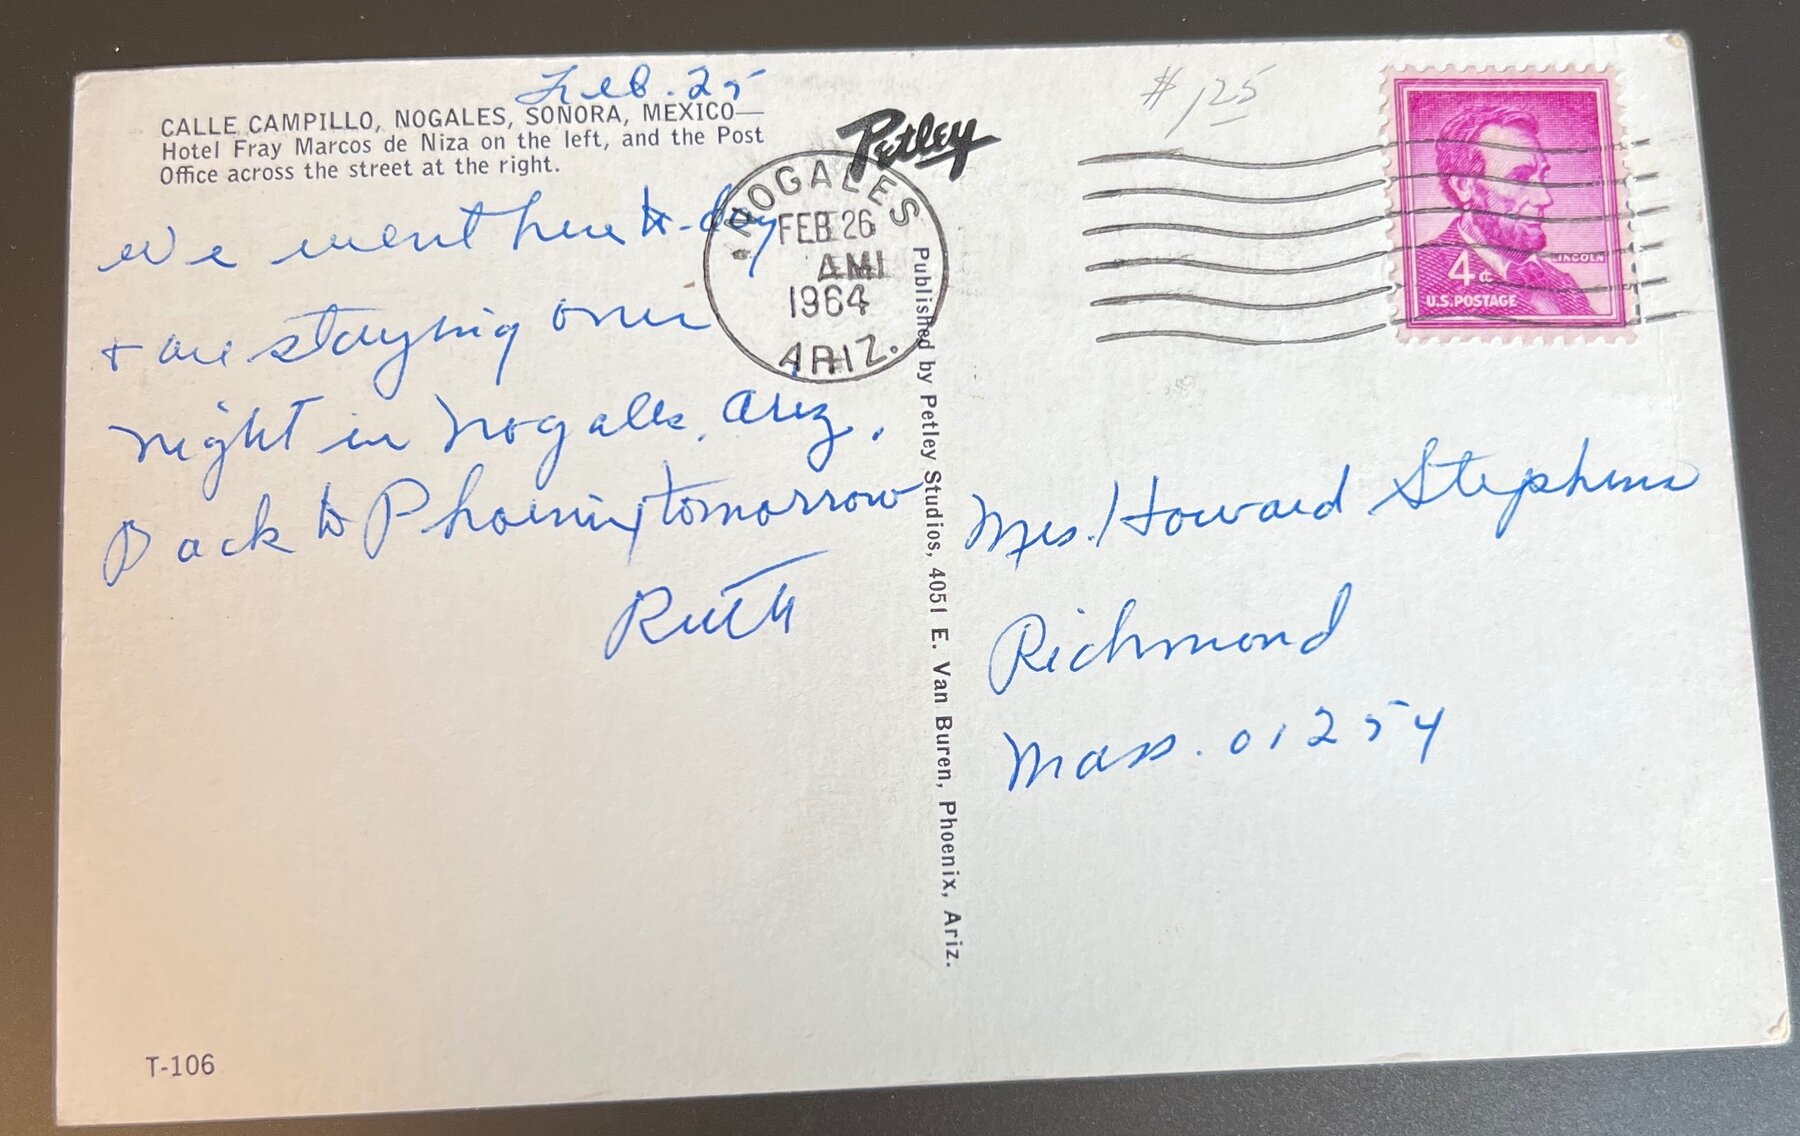 Feb. 25
CALLE CAMPILLO, NOGALES, SONORA, MEXICO—
Hotel Fray Marcos de Niza on the left, and the Post
Office across the street at the right.
We went here to-day
+ are staying over
night in Nogales, Ariz.
Back to Phoenix tomorrow
Ruth
T-106
Petley
NOGALES
FEB 26
AM
1964
ARIZ.
Published by Petley Studios, 4051 E. Van Buren, Phoenix, Ariz.
# 125
LINCOLN
4¢
U.S. POSTAGE
Mrs. Howard Stephens
Richmond
Mass. 01254